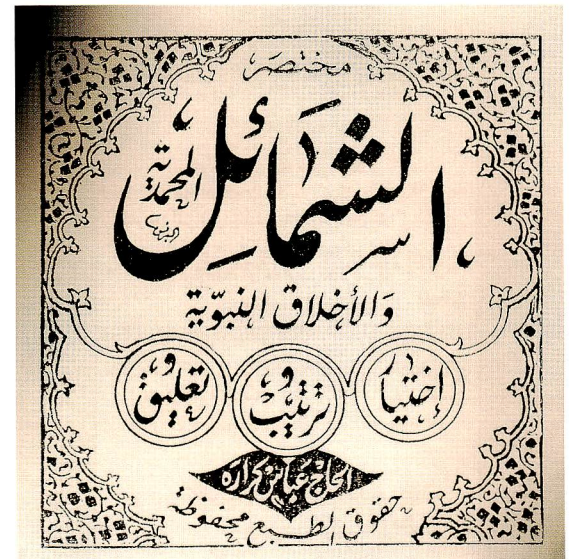 مختصر
الشمائل المحمدية
والأخلاق النبوّية
إختيار وترتيب وتعليق
الحاج عباس كرارة
حقوق الطبع محفوظة